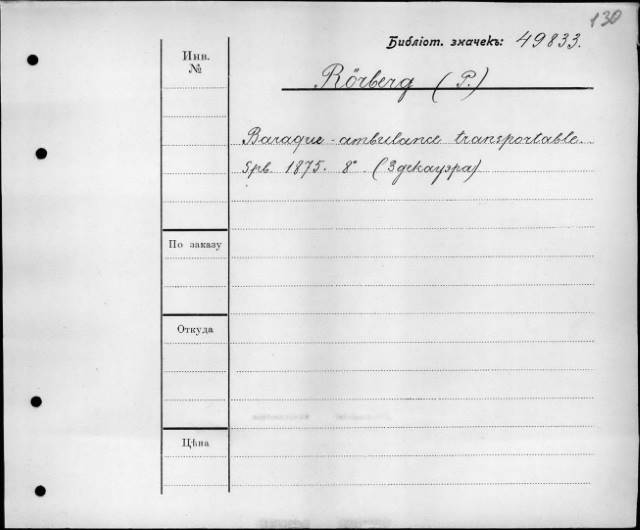 130
Библіот. значекъ: 49833.
Инв.
№
Rörberg (P.)
Baraque-ambulance transportable.
Spb. 1875. 8°. (3 декауэра)
По заказу
Откуда
Цѣна